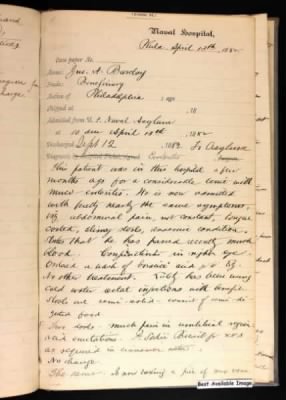 Naval Hospital,
Phila April 13th, 1882
Case paper No.
Name: Jno. A. Barclay
Grade: Beneficiary
Native of Philadelphia; age
Shipped at , 18
Admitted from U.S. Naval Asylum
at 10 am April 13th, 1882
Discharged Sept 12 1882. To Asylum
Diagnosis
This patient was in this hospital a few
months ago for a considerable time with
muco enteritis. He is now admitted
with pretty nearly the same symptoms,
viz abdominal pain, not constant, tongue
coated, slimy stools, anaemic condition.
States that he has passed recently much
blood. Conjunctivitis in right eye.
Ordered a wash of boracic acid
No other treatment. Lately has been using
cold water rectal injections with benefit.
Stools are semi-solid - consist of semi di-
gested food
Two stools - much pain in umbilical region
and eructations.
as required in
No change.
The same. Is now taking a pill of
Best Available Image.